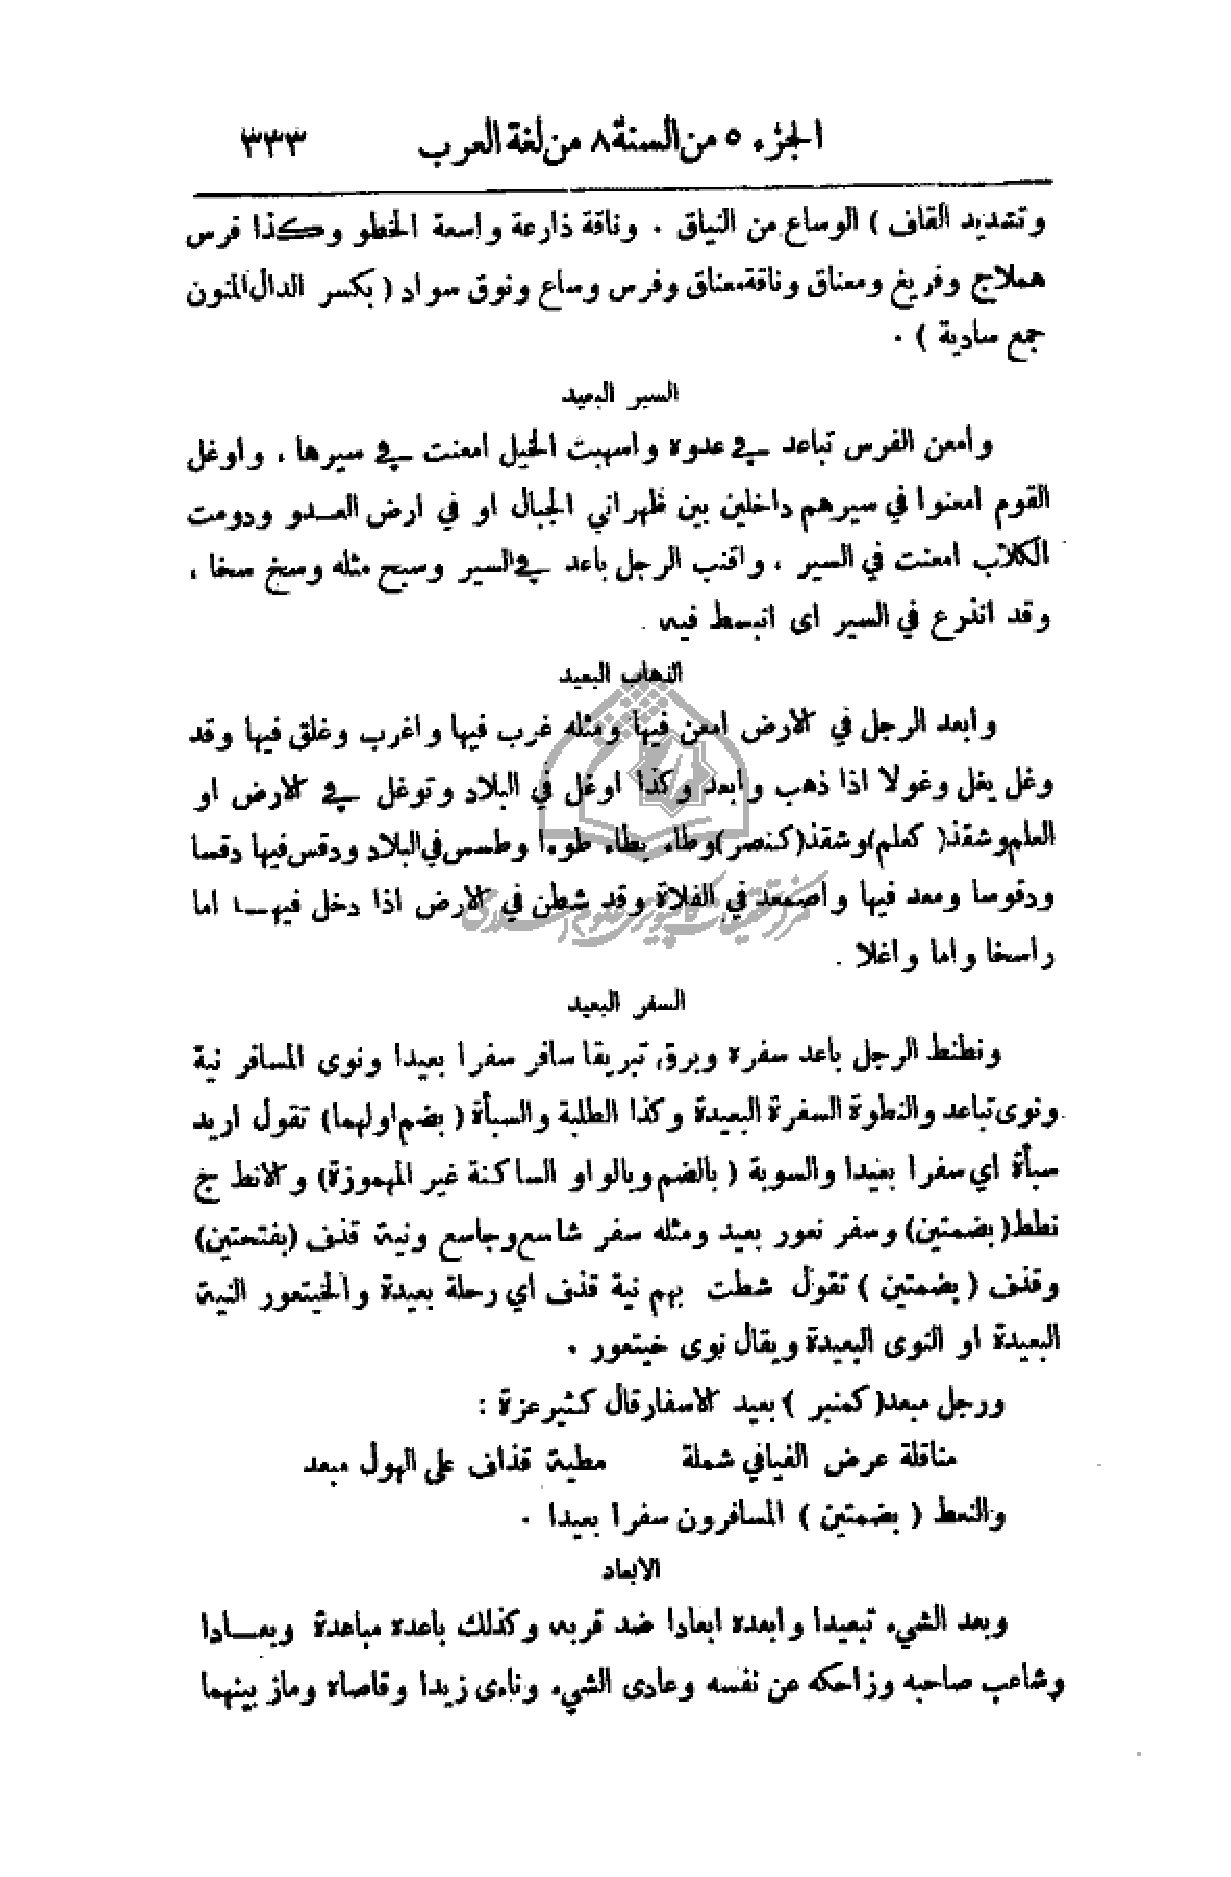 الجزء ٥ من السنة ٨ من لغة العرب ٣٣٣
وتشديد القاف ) الوساع من النياق . وناقة ذارعة واسعة الخطو وكذا فرس
هملاج وفريغ ومعناق وناقة معناق وفرس وساع ونوق سواد ( بكسر الدال المنون
جمع سادية ) .
السير البعيد
وامعن الفرس تباعد في عدوه واسهبت الخيل امعنت في سيرها ، واوغل
القوم امعنوا في سيرهم داخلين بين ظهراني الجبال او في ارض العـدو ودومت
الكلاب امعنت في السير ، واقنب الرجل باعد في السير وسبح مثله وسبخ سبخا ،
وقد انذرع في السير اى انبسط فيه .
الذهاب البعيد
وأبعد الرجل في الارض امعن فيها ومثله غرب فيها واغرب وغلق فيها وقد
وغل يغل وغولا اذا ذهب وابعد وكذا اوغل في البلاد وتوغل في الارض او
العلم وشقذ ( كعلم) وشقذ (كنصر) وطاء يطاء طوءا وطسس في البلاد ودقس فيها دقسا
ودقوسا ومعد فيها واصمعد في الفلاة وقد شطن في الارض اذا دخل فيهـا اما
راسخا واما واغلا .
السفر البعيد
ونطنط الرجل باعد سفره وبرق تبريقا سافر سفرا بعيدا ونوى المسافر نية
ونوى تباعد والنطوة السفرة البعيدة وكذا الطلبة والسبأة ( بضم اولهما) تقول اريد
سبأة اي سفرا بعيدا والسوبة ( بالضم وبالواو الساكنة غير المهموزة) والانط ج
نطط ( بضمتين) وسفر نعور بعيد ومثله سفر شاسع وجاسع ونية قذف (بفتحتين)
وقذف ( بضمتين ) تقول شطت بهم نية قذف اي رحلة بعيدة والخيتعور النية
البعيدة او النوى البعيدة ويقال نوى خيتعور .
ورجل مبعد ( كمنبر ) بعيد الاسفار قال كثير عزة :
مناقلة عرض الفيافي شملة مطية قذاف على الهول مبعد
والنعط ( بضمتين ) المسافرون سفرا بعيدا .
الابعاد
وبعد الشيء تبعيدا وابعده ابعادا ضد قربه وكذلك باعده مباعدة وبعـادا
وشاعب صاحبه وزاحكه عن نفسه وعادى الشيء وناءى زيدا وقاصاه وماز بينهما
مركز تحقيقات كامپيوتری علوم اسلامی